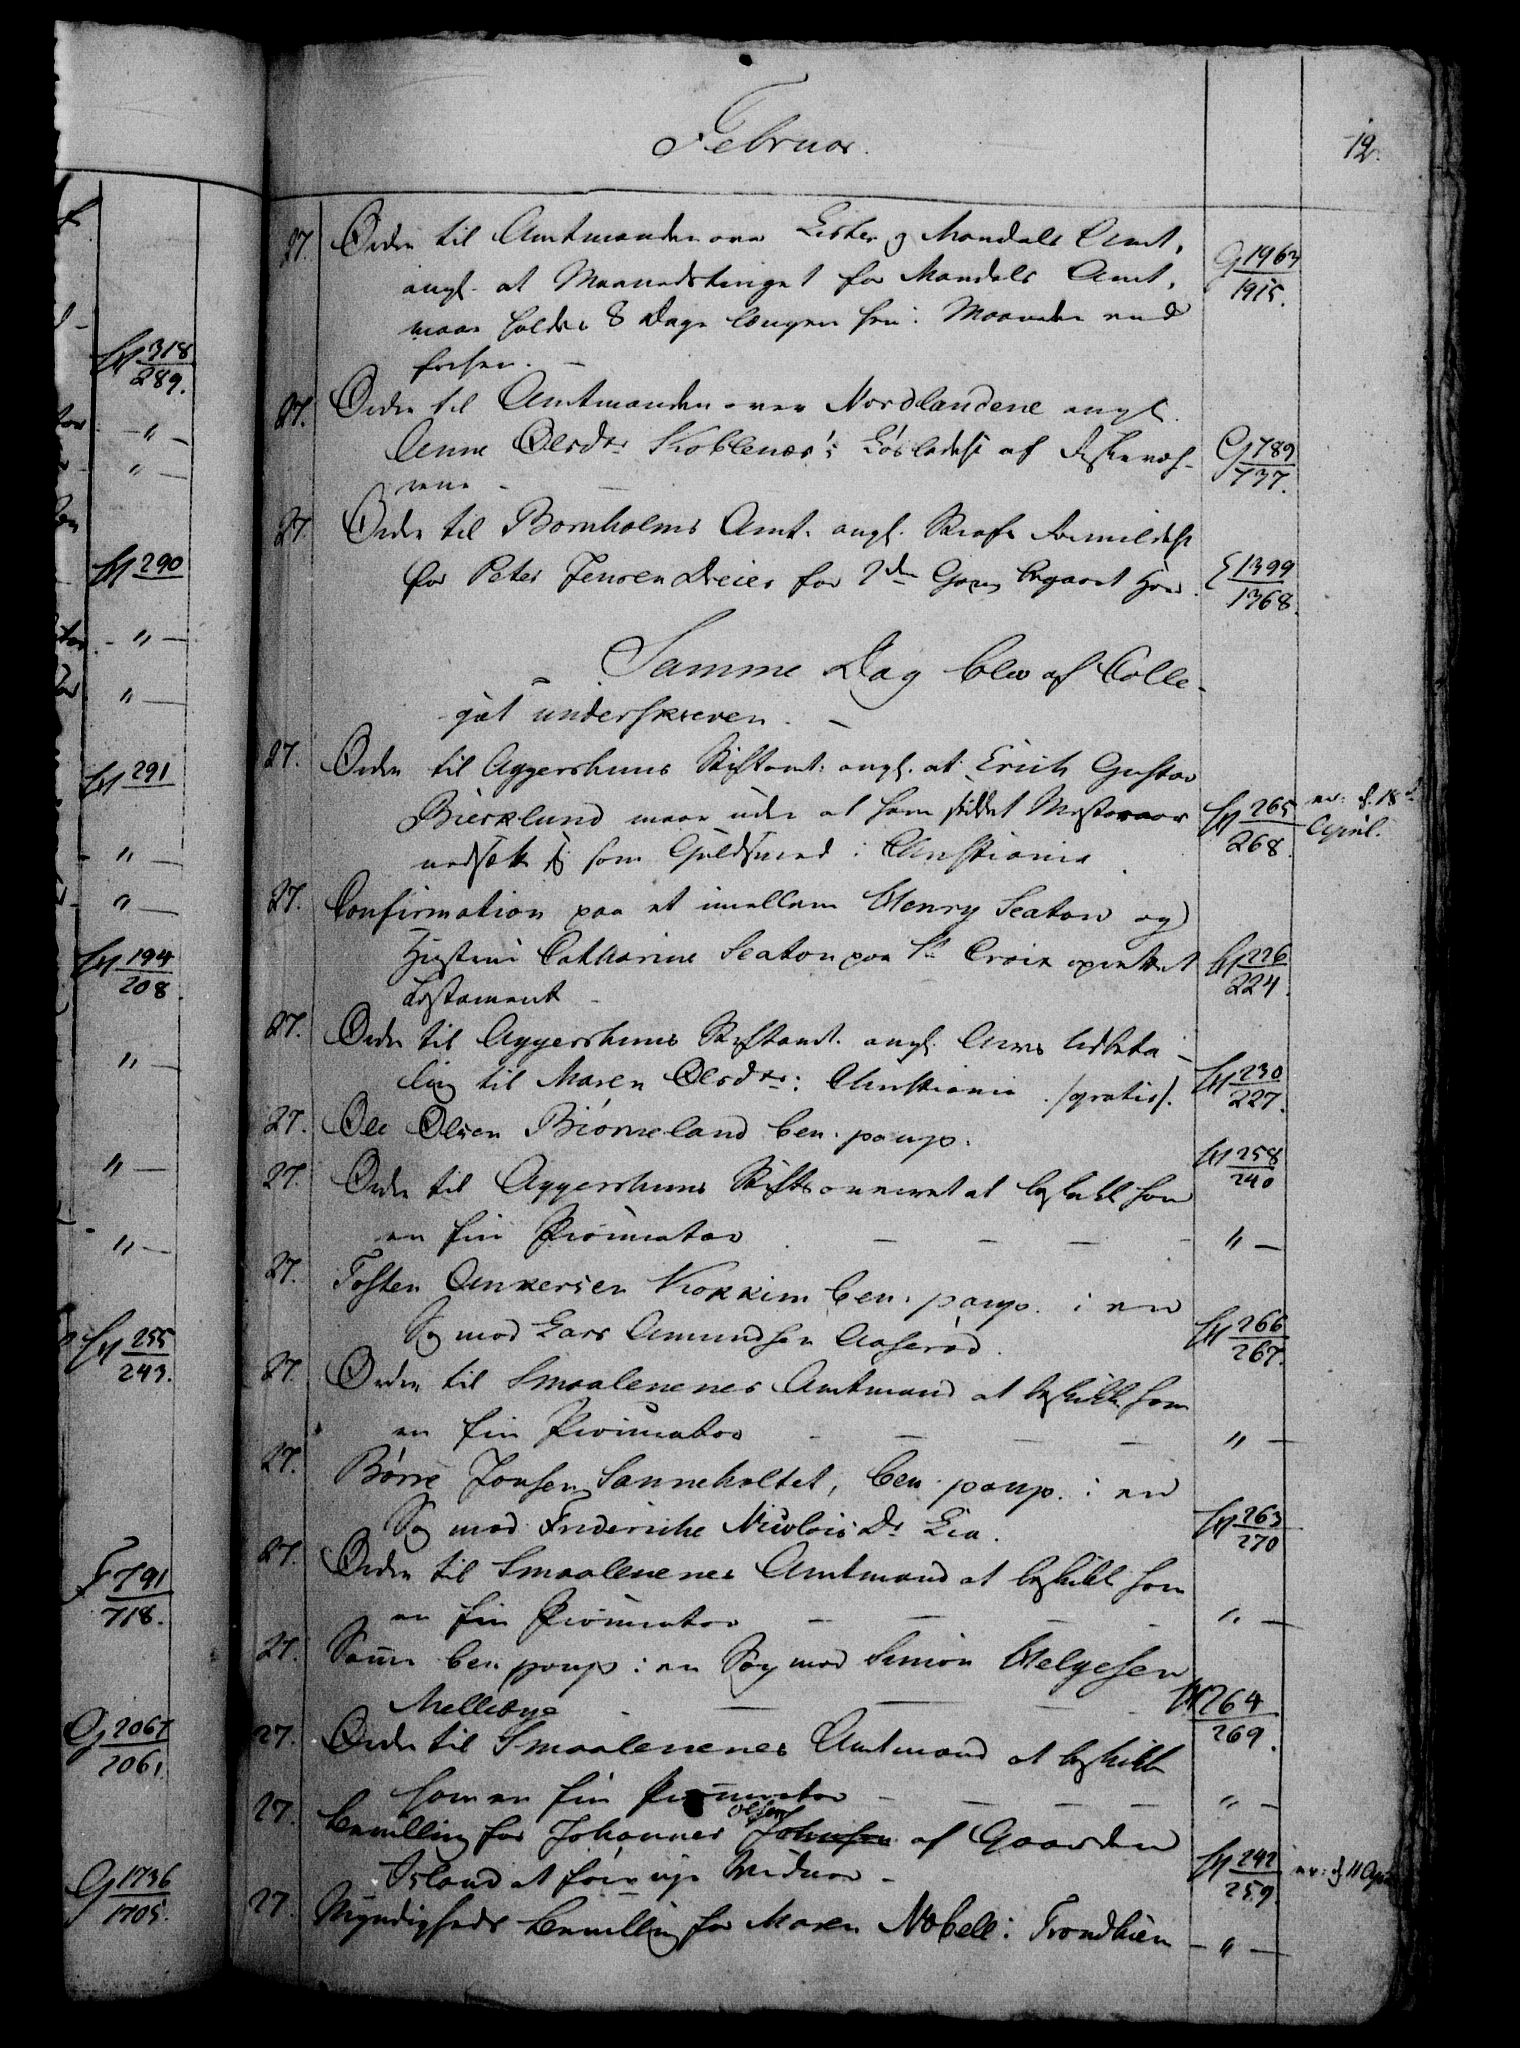 Februar.
12.
27. Ordre til Amtmanden over Lister og Mandals Amt,
angl. at Maanedstinget for Mandals Amt,
maae holdes 8 Dage længere hen i Maaneden end
forhen. —
G 1963
1915.
27. Ordre til Amtmanden over Nordlandene angl.
Anne Olsdr Koblenæs's Løsladelse af
G 789
737.
27. Ordre til Bornholms Amt. angl. Straffs Formildelse
for Peter Jensen Dreier for 2den Gang begaaet Hoer.
E 1399
1368.
Samme Dag blev af Colle-
giet underskreven. —
27. Ordre til Aggershuus Stiftamt. angl. at Erich Gustav
Biercklund maae uden at have Mester
nedsætte sig som Guldsmed i Christiania
H 265
268.
d. 18de
April.
27. Confirmation paa et imellem Henry Seaton og
Hustrue Catharine Seaton paa St Croix oprettet
Testament —
H 226
224.
27. Ordre til Aggershuus Stiftamt. angl. Arvs Udbeta-
ling til Maren Olsdr i Christiania /gratis/.
H 230
227.
27. Ole Olsen Biørneland ben. paup.
H 258
240
27. Ordre til Aggershuus Stifts at beskikke ham
en fri Procurator — — — —
" —
27. Tosten Ankersen Kokkim ben. paup. i en
Sag mod Lars Amundsen Aaserød.
H 266
267.
27. Ordre til Smaalenenes Amtmand at beskikke ham
en fri Procurator — — — —
" —
27. Børre Jonsen Sanneholtet, ben. paup. i en
Sag mod Frideriche Nicolais Dr Lia.
H 263
270
27. Ordre til Smaalenenes Amtmand at beskikke ham
en fri Procurator — — — —
" —
27. Samme ben. paup. i en Sag mod Simon Helgesen
Mellebye — — —
H 264
269.
27. Ordre til Smaalenenes Amtmand at beskikke
ham en fri Procurator — — — —
" —
27. Bevilling for Johannes Olsen Johnsen af Gaarden
Island at føre nye Vidner —
H 242
259.
d. 11 April
27. Myndigheds Bevilling for Maren Nobell i Trondhiem
— " —
H 318
289.
— " —
" —
H 290
— " —
" —
H 291
— " —
" —
H 194
208
" —
" —
" —
H 255
243.
F 791
718.
G 2067
2061.
G 1736
1705.